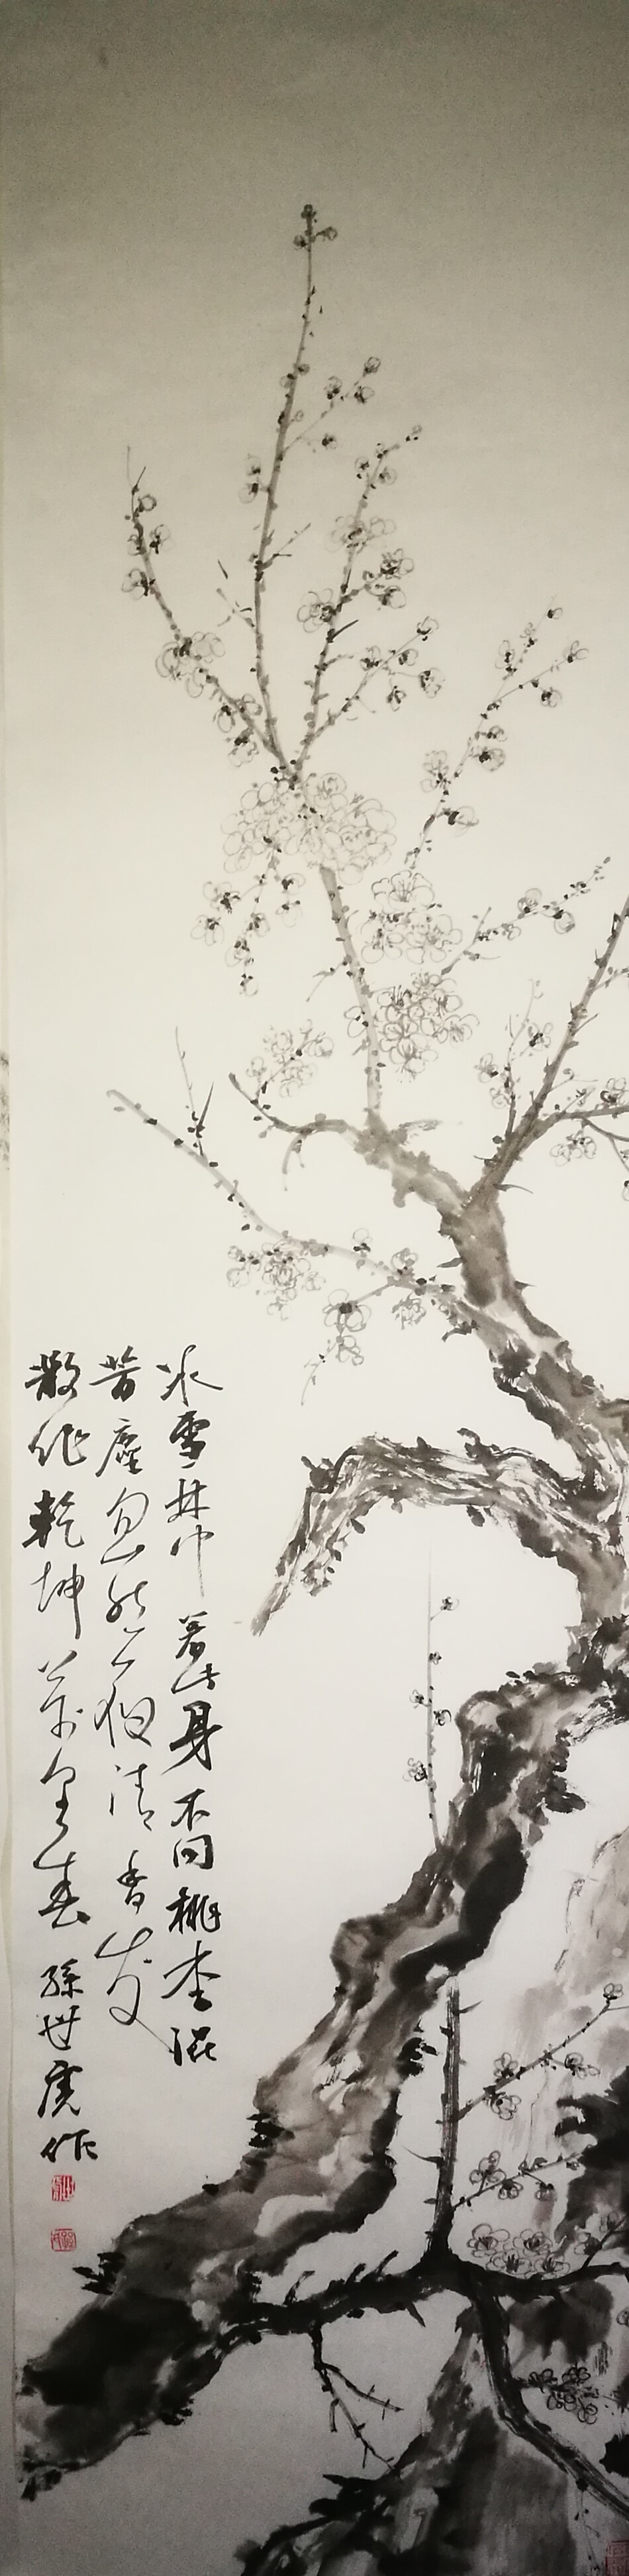 冰雪林中著此身不同桃李混
芳塵忽然一夜清香发
散作乾坤萬里春 孫世虎作